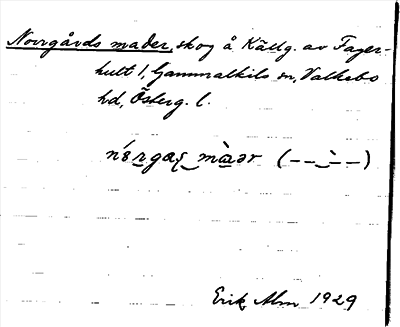 Norrgårds mader, skog å Källg. av Fager-
hult 1, Gammalkils sn, Valkebo
hd, Österg. l.
Erik Alm 1929